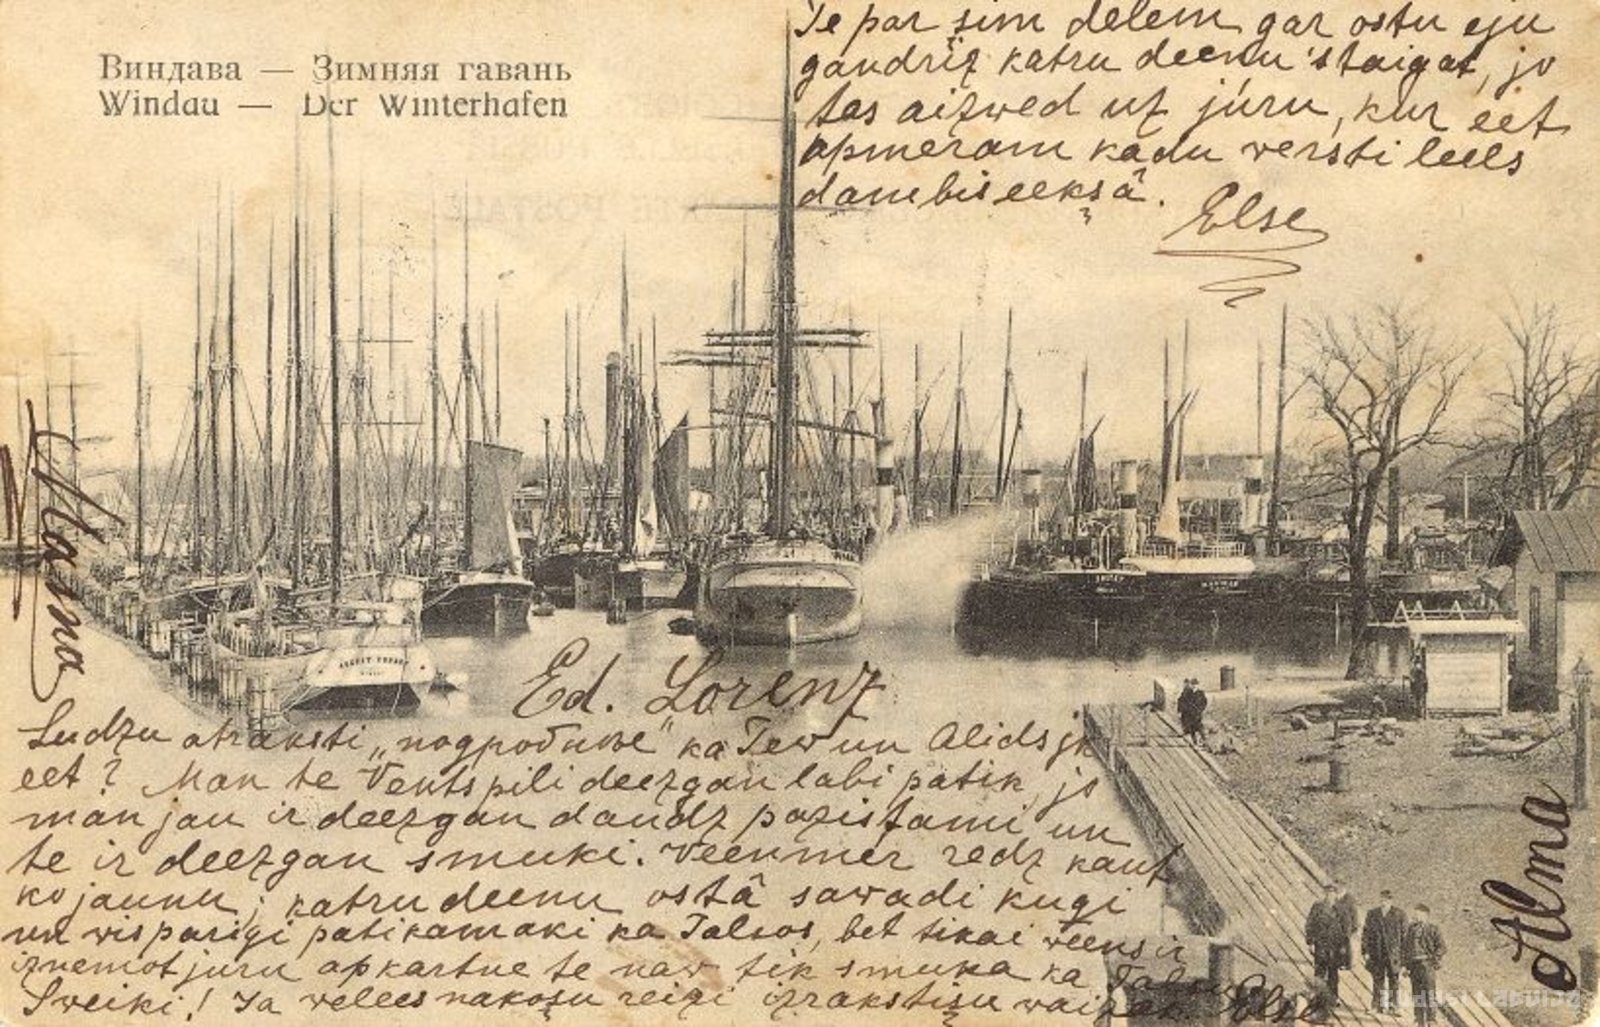 Виндава — Зимняя гавань
Windau — Der Winterhafen
Te par šim delem gar ostu eju
gandriz katru deenu 'staigat, jo
tas aizwed uz júru, kur eet
apmeram kadu wersti leels
dambis eekšâ.
Else
Mama
Ed. Lorenz
Ludzu atraksti „ ka Tew un
eet? Man te Ventspili deezgan labi patik, jo
man jau ir deezgan daudz pazistami un
te ir deezgan smuki. Veenmer redz kaut
ko jaunu; katru deenu ostâ sawadi kugi
un wisparigi patikamaki ka Talsos, bet tikai weens ir
iznemot juru apkartne te naw tik smuka ka
Sweiki! Ja welees nakošu reizi izrakstišu wairak. Else
Alma
Zudusi Latvija